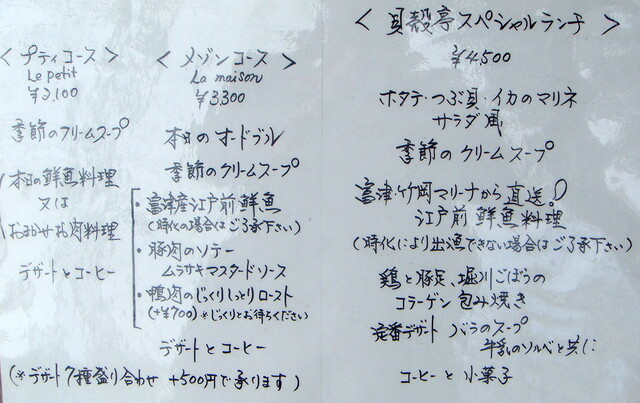 < プティコース >
Le petit
¥2,100
季節のクリームスープ
本日の鮮魚料理
又は
おまかせお肉料理
デザートとコーヒー
< メゾンコース >
La maison
¥3,300
本日のオードブル
季節のクリームスープ
・富津産江戸前鮮魚
(時化の場合はご了承下さい)
・豚肉のソテー
ムラサキマスタードソース
・鴨肉のじっくりしっとりロースト
(+¥700) ※じっくりとお待ちください
デザートとコーヒー
(※デザート7種盛り合わせ +500円で承ります)
< 貝殻亭スペシャルランチ >
¥4,500
ホタテ・つぶ貝・イカのマリネ
サラダ風
季節のクリームスープ
富津・竹岡マリーナから直送!
江戸前鮮魚料理
(時化により出漁できない場合はご了承下さい)
鶏と豚足、堀川ごぼうの
コラーゲン包み焼き
定番デザート バラのスープ
牛乳のソルベと共に
コーヒーと小菓子